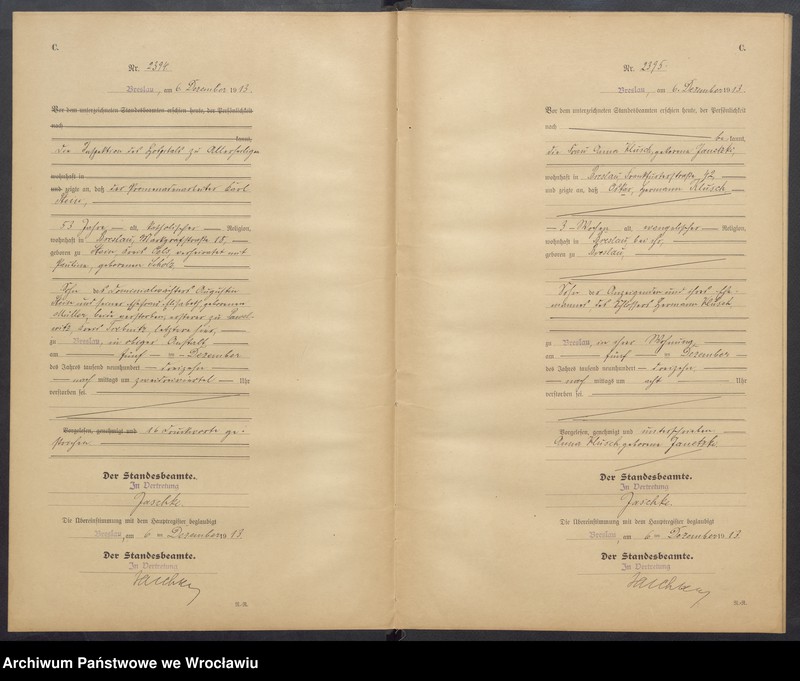 C.
Nr. 2394
Breslau, am 6. Dezember 1913.
Vor dem unterzeichneten Standesbeamten erschien heute, der Persönlichkeit
nach
kannt,
die Inspektion des Hospitals zu Allerheiligen
wohnhaft in
und zeigte an, daß der Promenadenarbeiter Karl
53 Jahre alt, katholischer Religion,
wohnhaft in Breslau, Marktgrafstraße 18,
geboren zu Kreis Oels, verheiratet mit
Pauline, geborenen Scholz
Sohn des August
und seiner Ehefrau Elisabeth, geborenen
Müller, beide verstorben, ersterer zu
Kreis Trebnitz, letztere hier,
zu Breslau, in obiger Anstalt
am fünf ten Dezember
des Jahres tausend neunhundert dreizehn
nach mittags um zweidreiviertel Uhr
verstorben sei.
Vorgelesen, genehmigt und 16 Druckworte ge-
strichen
Der Standesbeamte.
In Vertretung
Jaschke.
Die Übereinstimmung mit dem Hauptregister beglaubigt
Breslau, am 6 ten Dezember 1913.
Der Standesbeamte.
In Vertretung
Jaschke
R.-R.
C.
Nr. 2395.
Breslau, am 6. Dezember 1913.
Vor dem unterzeichneten Standesbeamten erschien heute, der Persönlichkeit
nach
be kannt,
die Frau Anna Klusch, geborene Janetzki,
wohnhaft in Breslau Frankfurterstraße 92
und zeigte an, daß Oskar, Hermann Klusch
3 Wochen alt, evangelischer Religion,
wohnhaft in Breslau bei ihr,
geboren zu Breslau,
Sohn der Anzeigenden und ihres Ehe-
mannes des Schlossers Hermann Klusch,
zu Breslau, in ihrer Wohnung
am fünf ten Dezember
des Jahres tausend neunhundert dreizehn,
nach mittags um acht Uhr
verstorben sei.
Vorgelesen, genehmigt und unterschrieben
Anna Klusch, geborene Janetzki
Der Standesbeamte.
In Vertretung
Jaschke.
Die Übereinstimmung mit dem Hauptregister beglaubigt
Breslau, am 6 ten Dezember 1913.
Der Standesbeamte.
In Vertretung
Jaschke
R.-R.
Archiwum Państwowe we Wrocławiu